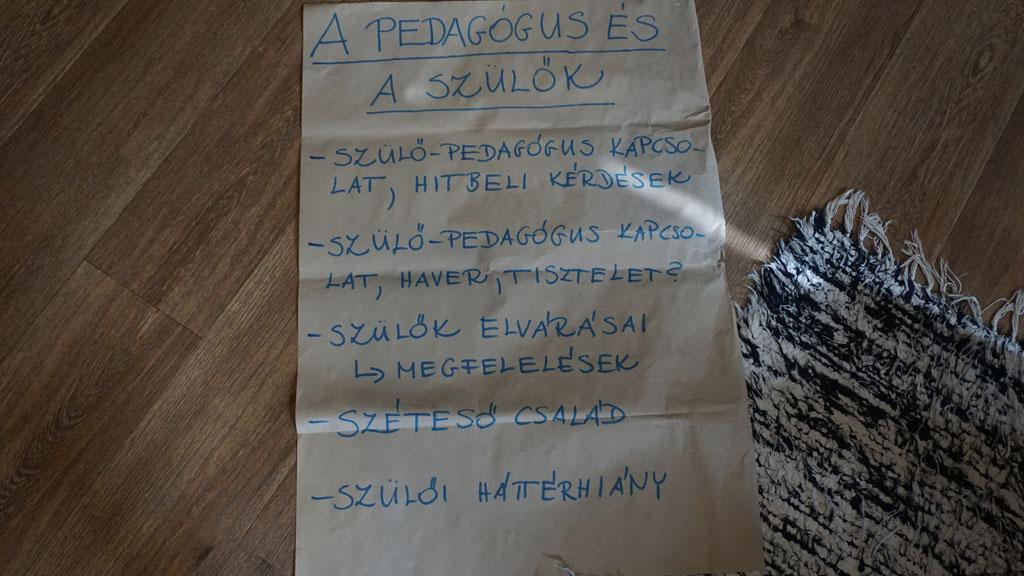 A PEDAGÓGUS ÉS
A SZÜLŐK
- SZÜLŐ-PEDAGÓGUS KAPCSO-
LAT, HITBELI KÉRDÉSEK
- SZÜLŐ-PEDAGÓGUS KAPCSO-
LAT, HAVER, TISZTELET?
- SZÜLŐK ELVÁRÁSAI
↳ MEGFELELÉSEK
- SZÉTESŐ CSALÁD
- SZÜLŐI HÁTTÉRHIÁNY